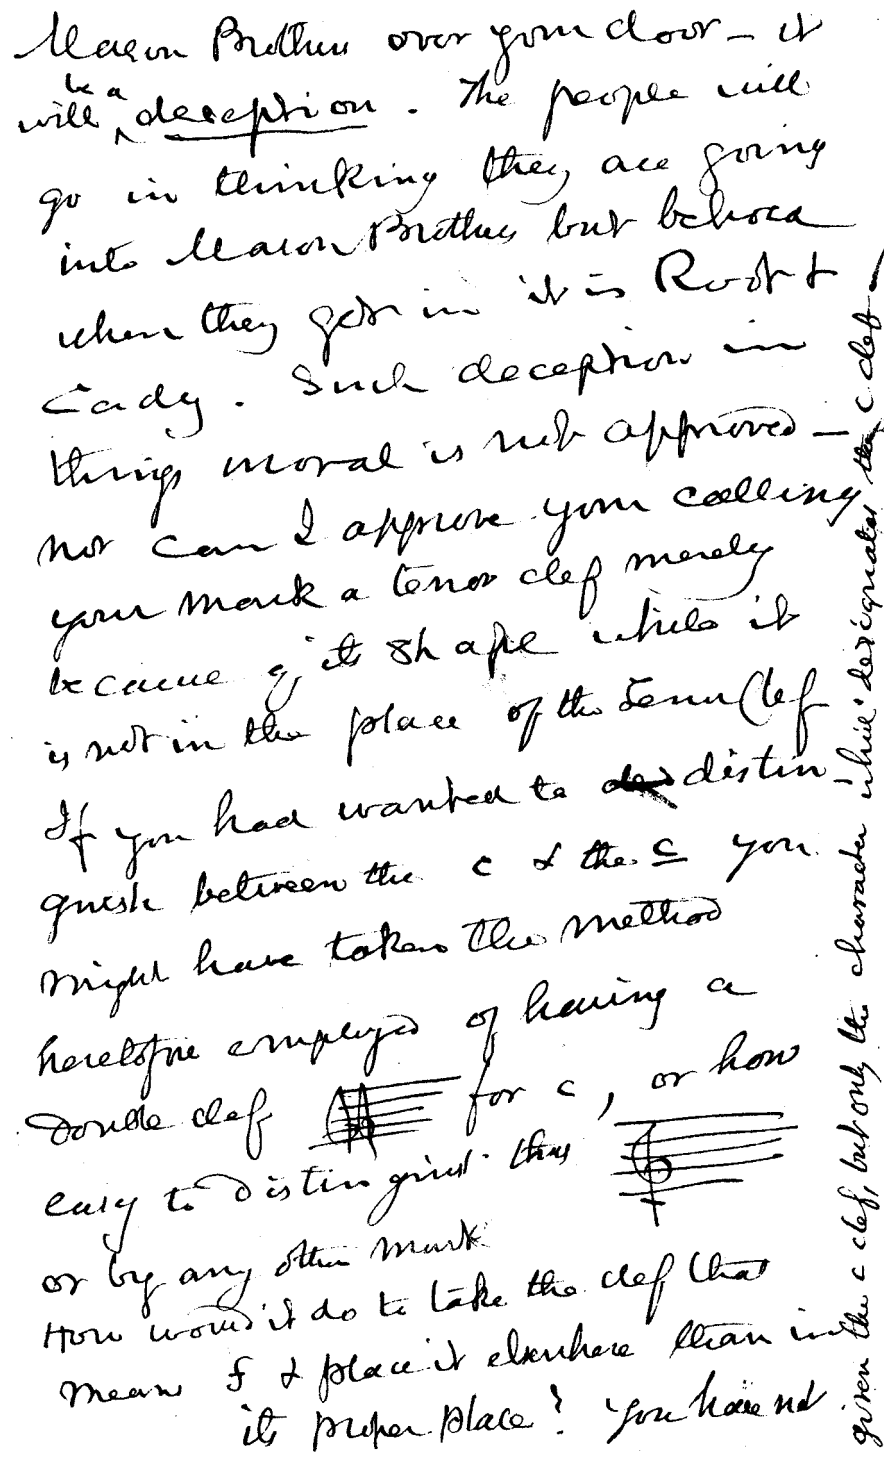 Mason Brothers over your door – it
will be a deception. The people will
go in thinking they are going
into Mason Brothers but behold
when they get in it is Root &
Cady. Such deception in
things moral is not approved –
nor can I approve your calling
your mark a tenor clef merely
because of its shape while it
is not in the place of the Tenor Clef
If you had wanted to distin
guish between the c & the c you
might have taken the method
heretofore employed of having a
double clef for c, or how
easy to distinguish thus
or by any other mark
How would it do to take the clef that
means f & place it elsewhere than in
its proper place? You have not
given the c clef, but only the character which designates the c clef